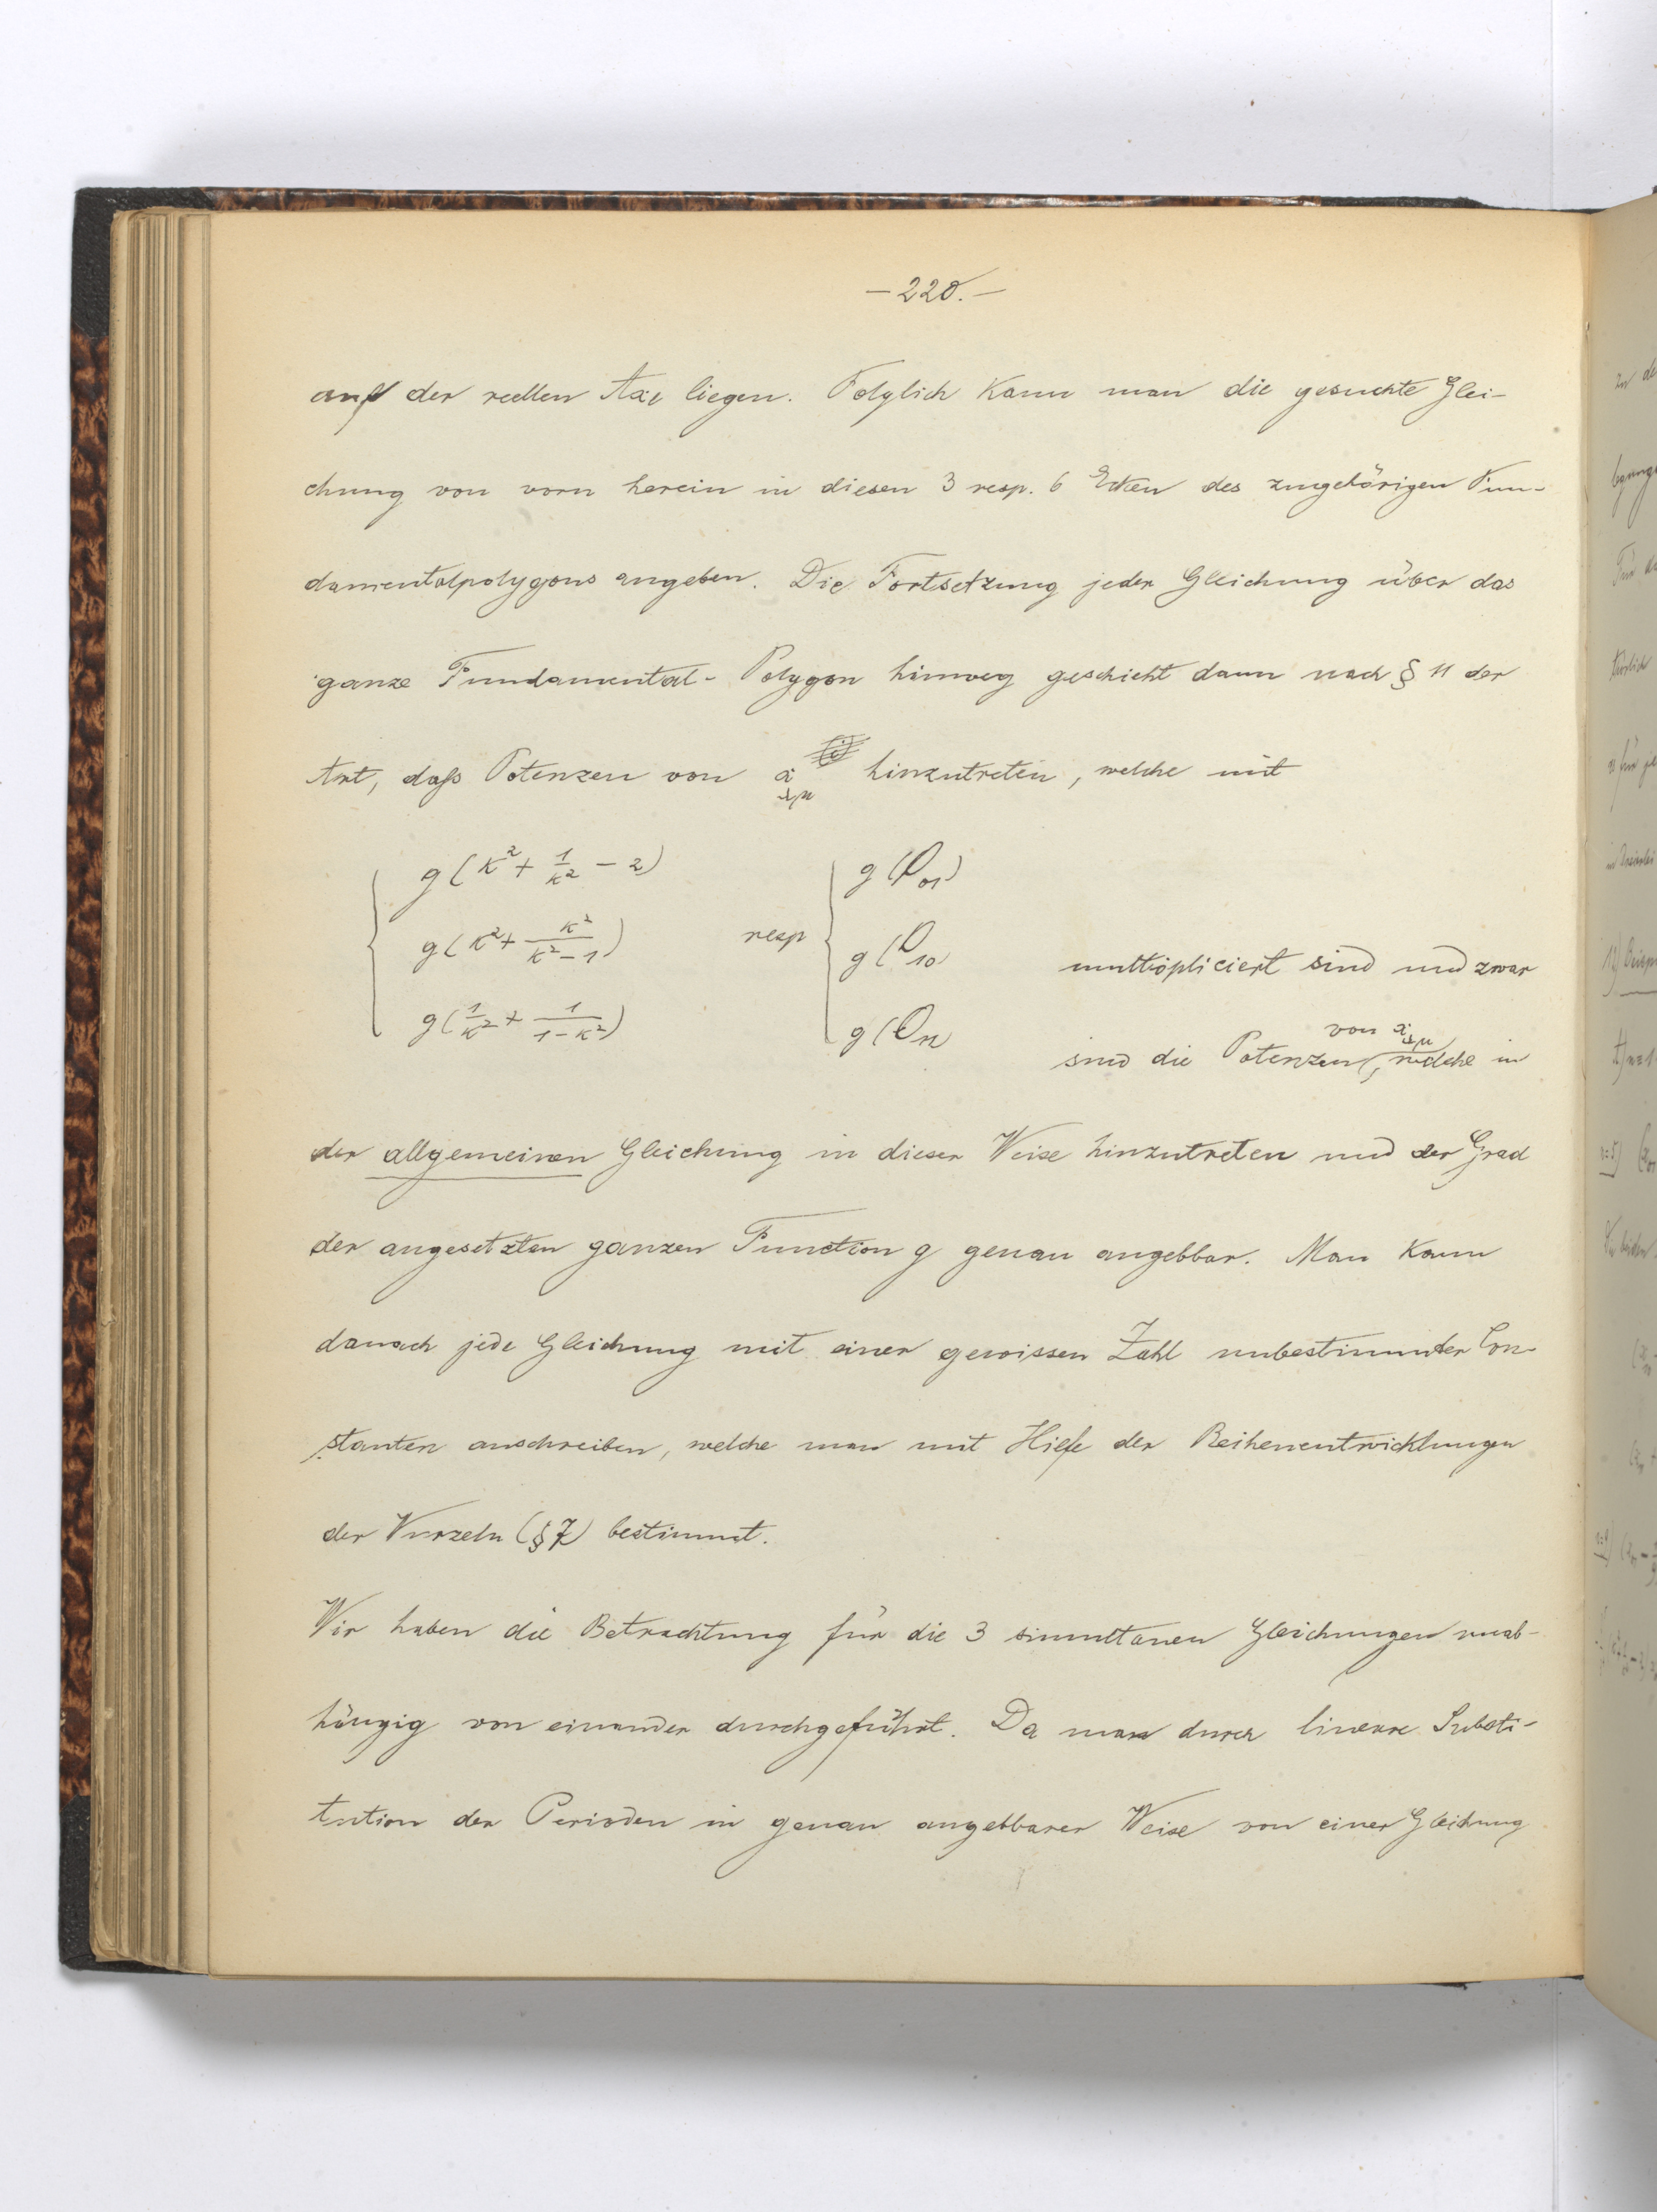 — 220. —
auf der reellen Axe liegen. Folglich kann man die gesuchte Glei-
chung von vorn herein in diesen 3 resp. 6 Ecken des zugehörigen Fun-
damentalpolygons angeben. Die Fortsetzung jeder Gleichung über das
ganze Fundamental-Polygon hinweg geschieht dann nach § 11 der
Art, daß Potenzen von x_{λμ} hinzutreten, welche mit
{ g(κ² + 1/κ² - 2) resp { g(l_{01})
g(κ² + κ²/(κ²-1)) g(l_{10}) multiopliciert sind und zwar
g(1/κ² + 1/(1-κ²)) g(l_{11})
sind die Potenzen von x_{λμ}, welche in
der allgemeinen Gleichung in dieser Weise hinzutreten und der Grad
der angesetzten ganzen Function g genau angebbar. Man kann
danach jede Gleichung mit einer gewissen Zahl unbestimmter Con-
stanten anschreiben, welche man mit Hilfe der Reihenentwicklungen
der Wurzeln (§ 7) bestimmt.
Wir haben die Betrachtung für die 3 simultanen Gleichungen unab-
hängig von einander durchgeführt. Da man durch lineare Substi-
tution der Perioden in genau angebbarer Weise von einer Gleichung